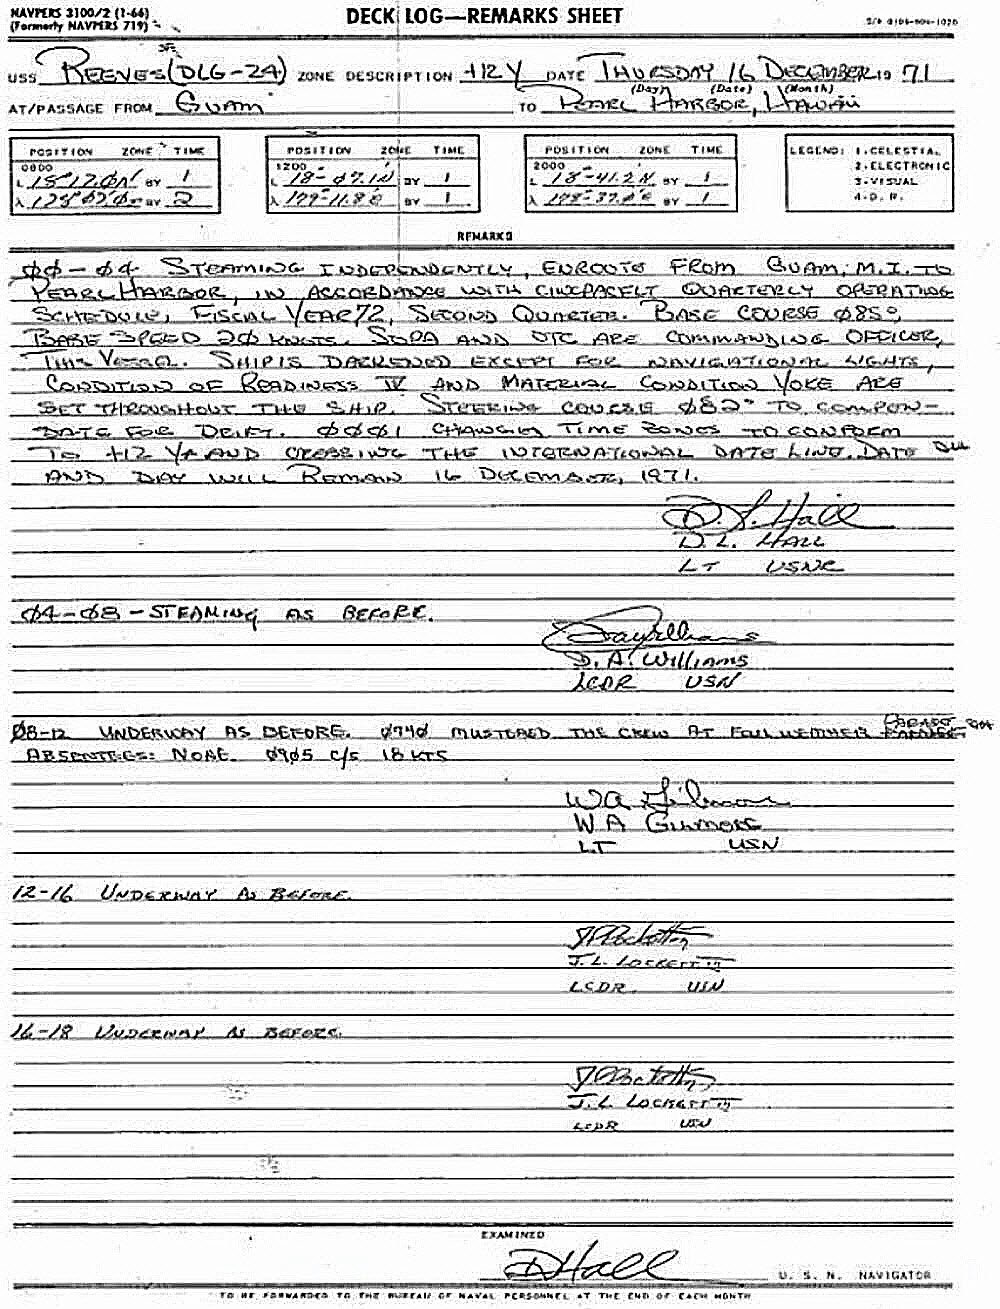 NAVPERS 3100/2 (1-66)
(Formerly NAVPERS 719)
DECK LOG—REMARKS SHEET
USS REEVES (DLG-24) ZONE DESCRIPTION +12Y DATE THURSDAY 16 DECEMBER 19 71
(Day) (Date) (Month)
AT/PASSAGE FROM GUAM TO PEARL HARBOR, HAWAII
POSITION ZONE TIME
0800
L BY 1
λ BY 2
POSITION ZONE TIME
1200
L 18-07.1N BY 1
λ 179-11.8E BY 1
POSITION ZONE TIME
2000
L 18-41.2N BY 1
λ BY 1
LEGEND: 1.CELESTIAL
2.ELECTRONIC
3-VISUAL
4-D. R.
REMARKS
ØØ-Ø4 STEAMING INDEPENDENTLY, ENROUTE FROM GUAM, M.I. TO
PEARL HARBOR, IN ACCORDANCE WITH CINCPACFLT QUARTERLY OPERATING
SCHEDULE, FISCAL YEAR 72, SECOND QUARTER. BASE COURSE Ø85°,
BASE SPEED 2Ø KNOTS. SOPA AND OTC ARE COMMANDING OFFICER,
THIS VESSEL. SHIP IS DARKENED EXCEPT FOR NAVIGATIONAL LIGHTS,
CONDITION OF READINESS IV AND MATERIAL CONDITION YOKE ARE
SET THROUGHOUT THE SHIP. STEERING COURSE Ø82° TO COMPEN-
DATE FOR DRIFT. ØØØ1 CHANGED TIME ZONES TO CONFORM
TO +12 Y AND CROSSING THE INTERNATIONAL DATE LINE. DATE DLH
AND DAY WILL REMAIN 16 DECEMBER, 1971.
D. L. Hall
D. L. HALL
LT USNR
Ø4-Ø8-STEAMING AS BEFORE.
D. A. WILLIAMS
LCDR USN
Ø8-12 UNDERWAY AS BEFORE. Ø74Ø MUSTERED THE CREW AT FOUL WEATHER PARADE
ABSENTEES: NONE. Ø9Ø5 C/S 18 KTS
WA Gilmore
W A GILMORE
LT USN
12-16 UNDERWAY AS BEFORE.
J L Lockett III
J. L. LOCKETT III
LCDR USN
16-18 UNDERWAY AS BEFORE.
J L Lockett III
J. L. LOCKETT III
LCDR USN
EXAMINED
D L Hall U. S. N. NAVIGATOR
TO BE FORWARDED TO THE BUREAU OF NAVAL PERSONNEL AT THE END OF EACH MONTH